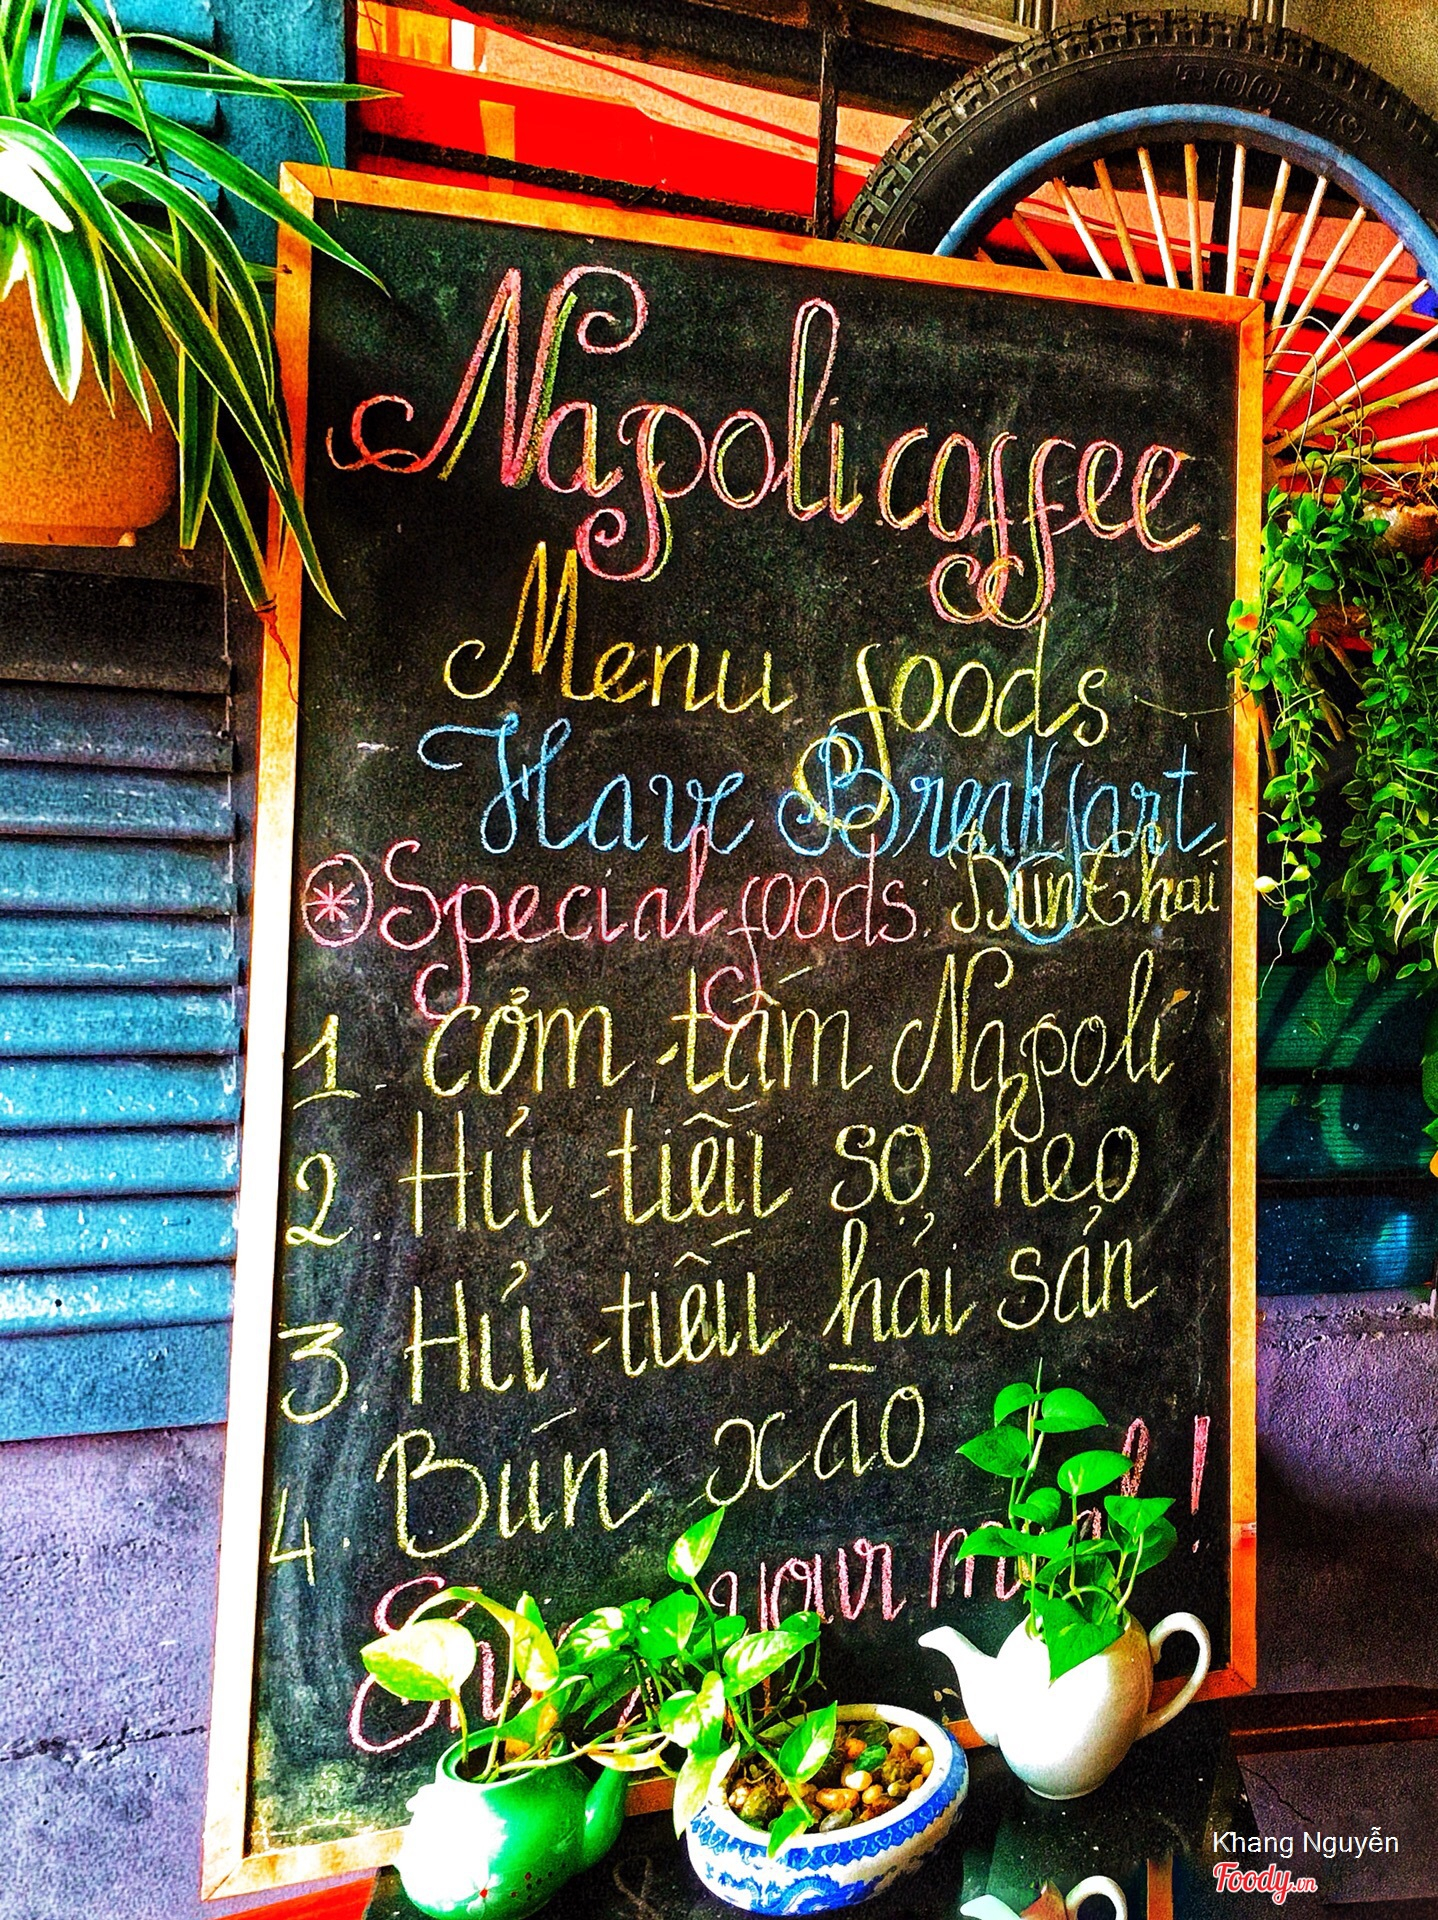 Napoli coffee
Menu foods
Have Breakfart
Special foods: Bún thái
1. Cơm tấm Napoli
2. Hủ tiếu sọ heo
3 Hủ tiếu hải sản
4. Bún xào
your
Khang Nguyễn
Foody.vn